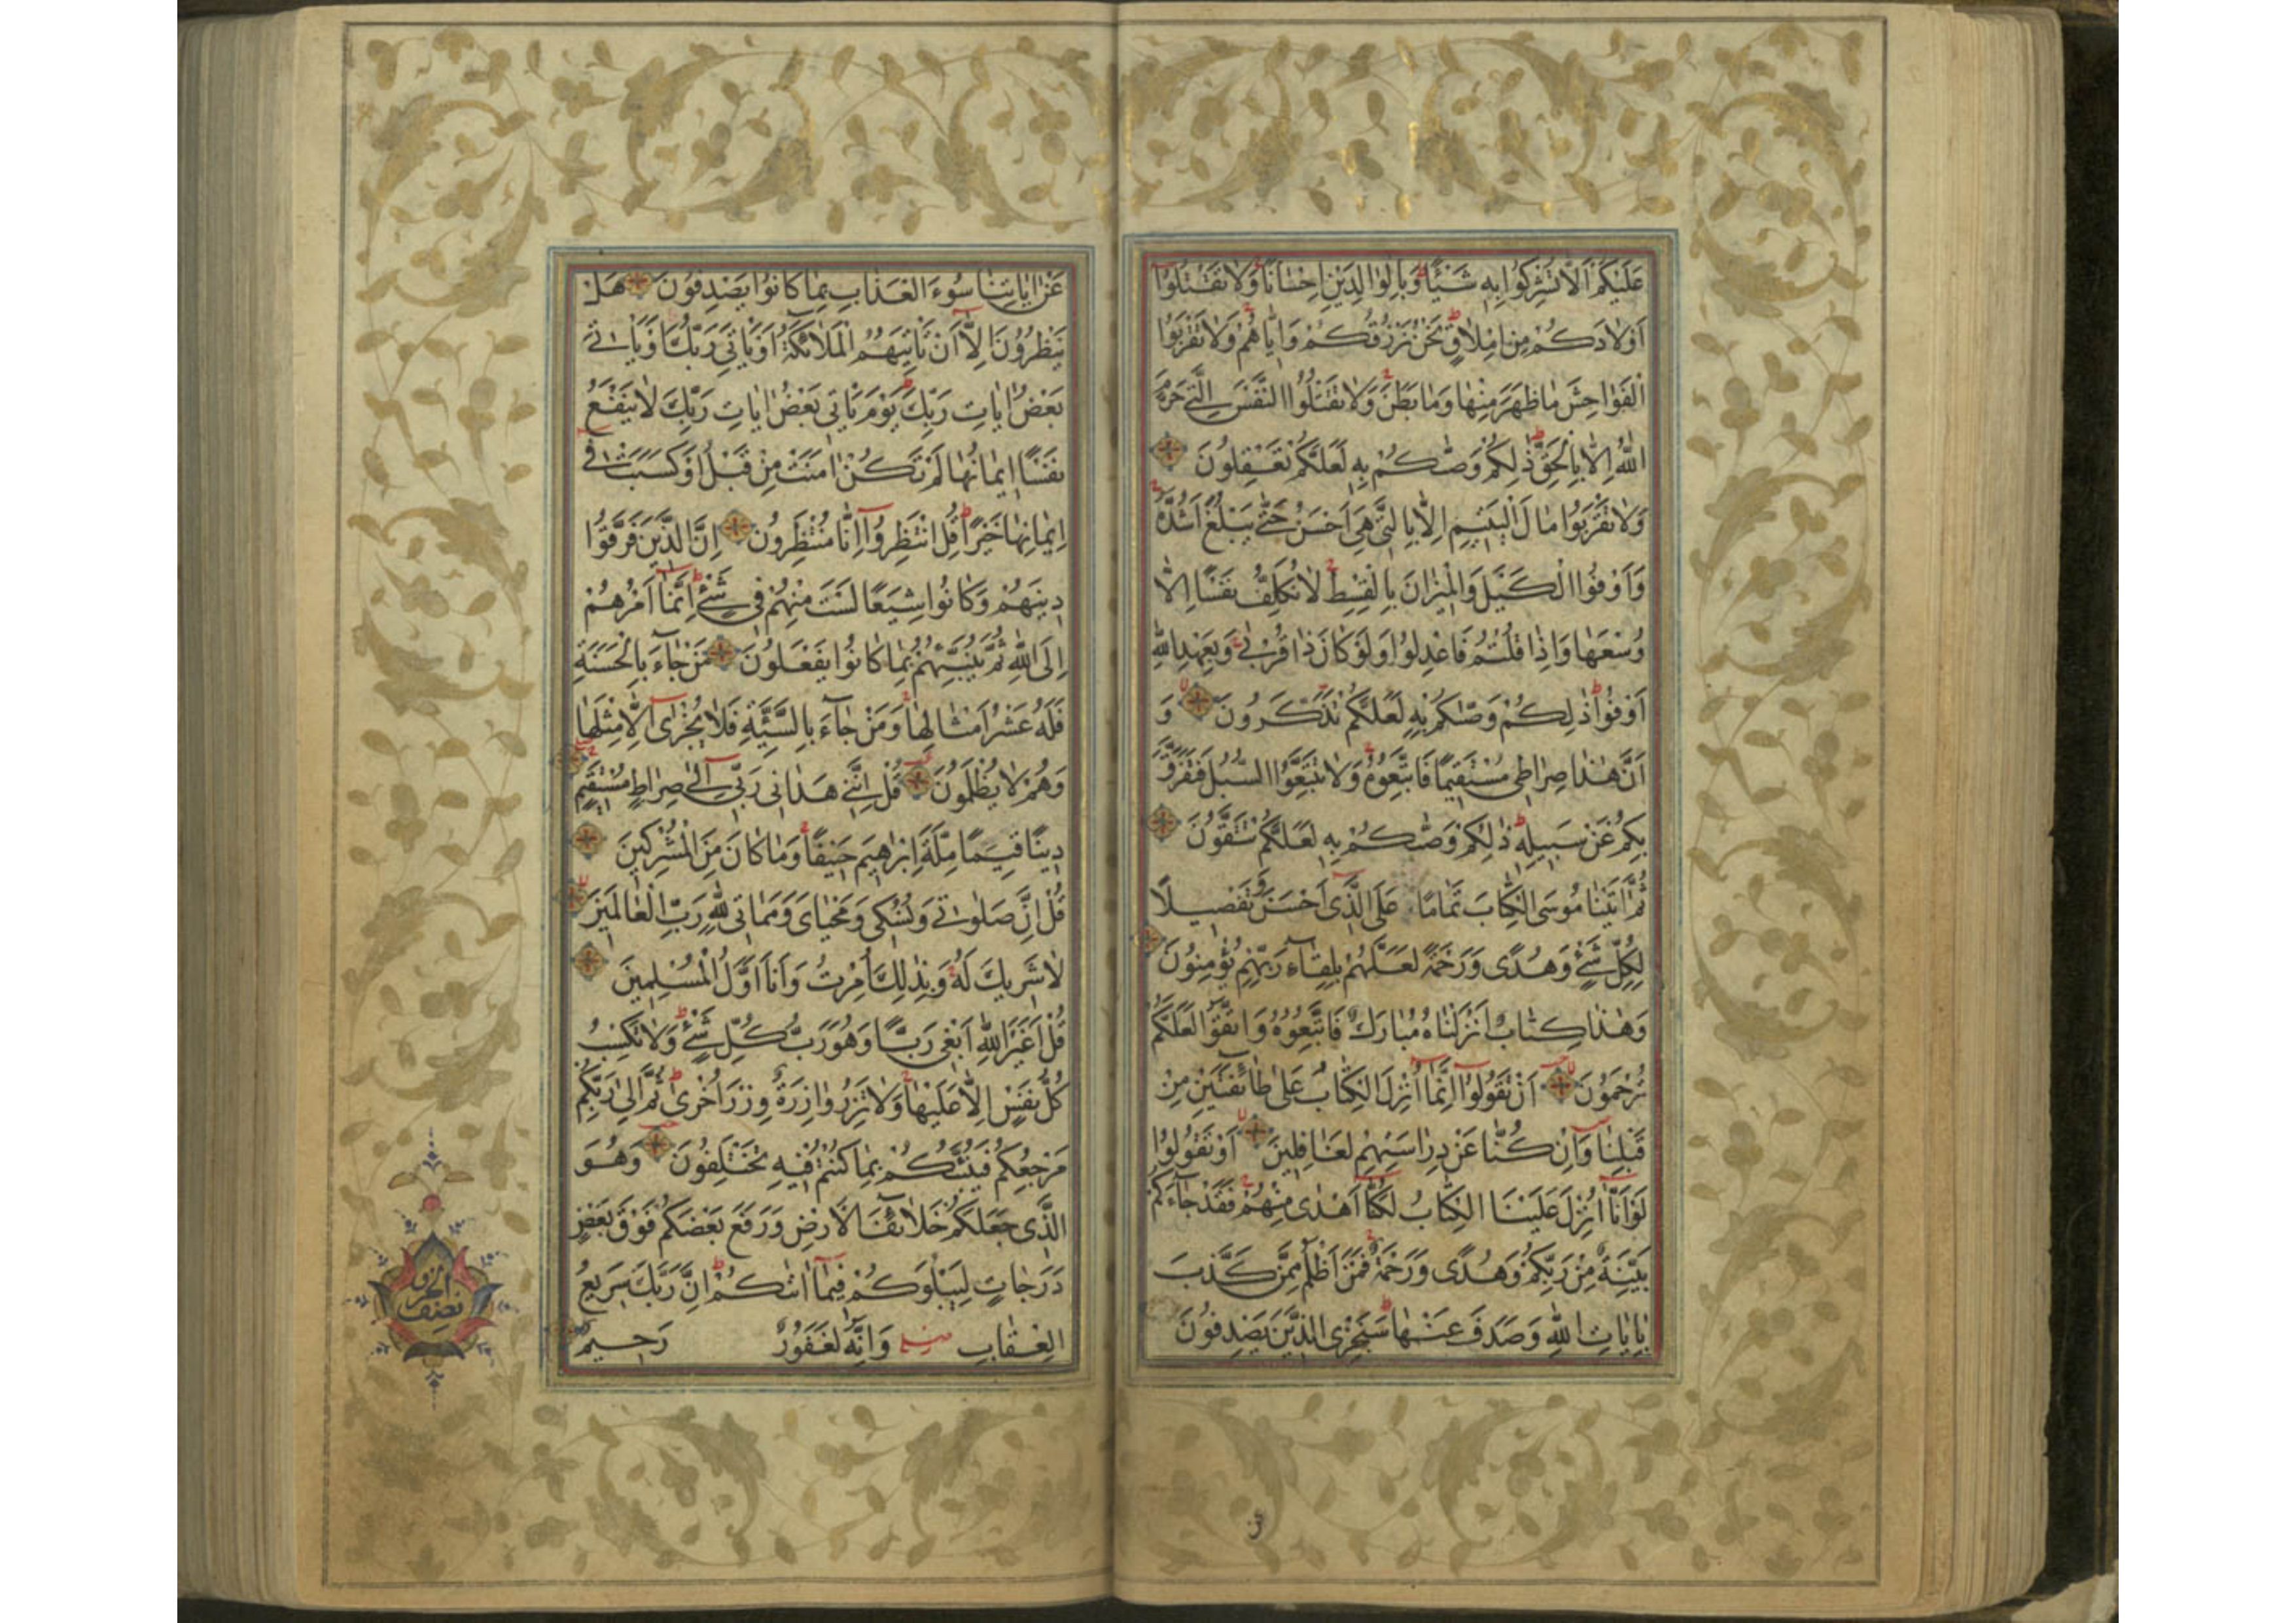 عَلَيْكُمْ اَلَّا تُشْرِكُوا بِهٖ شَيْئًا وَبِالْوَالِدَيْنِ اِحْسَانًا وَلَا تَقْتُلُوا
اَوْلَادَكُمْ مِنْ اِمْلَاقٍ نَحْنُ نَرْزُقُكُمْ وَاِيَّاهُمْ وَلَا تَقْرَبُوا
الْفَوَاحِشَ مَا ظَهَرَ مِنْهَا وَمَا بَطَنَ وَلَا تَقْتُلُوا النَّفْسَ الَّتِي حَرَّمَ
اللّٰهُ اِلَّا بِالْحَقِّ ذٰلِكُمْ وَصّٰكُمْ بِهٖ لَعَلَّكُمْ تَعْقِلُونَ
وَلَا تَقْرَبُوا مَالَ الْيَتِيمِ اِلَّا بِالَّتِي هِيَ اَحْسَنُ حَتّٰى يَبْلُغَ اَشُدَّهُ
وَاَوْفُوا الْكَيْلَ وَالْمِيزَانَ بِالْقِسْطِ لَا نُكَلِّفُ نَفْسًا اِلَّا
وُسْعَهَا وَاِذَا قُلْتُمْ فَاعْدِلُوا وَلَوْ كَانَ ذَا قُرْبٰى وَبِعَهْدِ اللّٰهِ
اَوْفُوا ذٰلِكُمْ وَصّٰكُمْ بِهٖ لَعَلَّكُمْ تَذَكَّرُونَ وَ
اَنَّ هٰذَا صِرَاطِي مُسْتَقِيمًا فَاتَّبِعُوهُ وَلَا تَتَّبِعُوا السُّبُلَ فَتَفَرَّقَ
بِكُمْ عَنْ سَبِيلِهٖ ذٰلِكُمْ وَصّٰكُمْ بِهٖ لَعَلَّكُمْ تَتَّقُونَ
ثُمَّ اٰتَيْنَا مُوسَى الْكِتَابَ تَمَامًا عَلَى الَّذِي اَحْسَنَ وَتَفْصِيلًا
لِكُلِّ شَيْءٍ وَهُدًى وَرَحْمَةً لَعَلَّهُمْ بِلِقَاءِ رَبِّهِمْ يُؤْمِنُونَ
وَهٰذَا كِتَابٌ اَنْزَلْنَاهُ مُبَارَكٌ فَاتَّبِعُوهُ وَاتَّقُوا لَعَلَّكُمْ
تُرْحَمُونَ اَنْ تَقُولُوا اِنَّمَا اُنْزِلَ الْكِتَابُ عَلٰى طَائِفَتَيْنِ مِنْ
قَبْلِنَا وَاِنْ كُنَّا عَنْ دِرَاسَتِهِمْ لَغَافِلِينَ اَوْ تَقُولُوا
لَوْ اَنَّا اُنْزِلَ عَلَيْنَا الْكِتَابُ لَكُنَّا اَهْدٰى مِنْهُمْ فَقَدْ جَاءَكُمْ
بَيِّنَةٌ مِنْ رَبِّكُمْ وَهُدًى وَرَحْمَةٌ فَمَنْ اَظْلَمُ مِمَّنْ كَذَّبَ
بِاٰيَاتِ اللّٰهِ وَصَدَفَ عَنْهَا سَنَجْزِي الَّذِينَ يَصْدِفُونَ
عَنْ اٰيَاتِنَا سُوءَ الْعَذَابِ بِمَا كَانُوا يَصْدِفُونَ هَلْ
يَنْظُرُونَ اِلَّا اَنْ تَأْتِيَهُمُ الْمَلَائِكَةُ اَوْ يَأْتِيَ رَبُّكَ اَوْ يَأْتِيَ
بَعْضُ اٰيَاتِ رَبِّكَ يَوْمَ يَأْتِي بَعْضُ اٰيَاتِ رَبِّكَ لَا يَنْفَعُ
نَفْسًا اِيمَانُهَا لَمْ تَكُنْ اٰمَنَتْ مِنْ قَبْلُ اَوْ كَسَبَتْ فِي
اِيمَانِهَا خَيْرًا قُلِ انْتَظِرُوا اِنَّا مُنْتَظِرُونَ اِنَّ الَّذِينَ فَرَّقُوا
دِينَهُمْ وَكَانُوا شِيَعًا لَسْتَ مِنْهُمْ فِي شَيْءٍ اِنَّمَا اَمْرُهُمْ
اِلَى اللّٰهِ ثُمَّ يُنَبِّئُهُمْ بِمَا كَانُوا يَفْعَلُونَ مَنْ جَاءَ بِالْحَسَنَةِ
فَلَهُ عَشْرُ اَمْثَالِهَا وَمَنْ جَاءَ بِالسَّيِّئَةِ فَلَا يُجْزٰى اِلَّا مِثْلَهَا
وَهُمْ لَا يُظْلَمُونَ قُلْ اِنَّنِي هَدَانِي رَبِّي اِلٰى صِرَاطٍ مُسْتَقِيمٍ
دِينًا قِيَمًا مِلَّةَ اِبْرٰهِيمَ حَنِيفًا وَمَا كَانَ مِنَ الْمُشْرِكِينَ
قُلْ اِنَّ صَلٰوتِي وَنُسُكِي وَمَحْيَايَ وَمَمَاتِي لِلّٰهِ رَبِّ الْعَالَمِينَ
لَا شَرِيكَ لَهُ وَبِذٰلِكَ اُمِرْتُ وَاَنَا اَوَّلُ الْمُسْلِمِينَ
قُلْ اَغَيْرَ اللّٰهِ اَبْغِي رَبًّا وَهُوَ رَبُّ كُلِّ شَيْءٍ وَلَا تَكْسِبُ
كُلُّ نَفْسٍ اِلَّا عَلَيْهَا وَلَا تَزِرُ وَازِرَةٌ وِزْرَ اُخْرٰى ثُمَّ اِلٰى رَبِّكُمْ
مَرْجِعُكُمْ فَيُنَبِّئُكُمْ بِمَا كُنْتُمْ فِيهِ تَخْتَلِفُونَ وَهُوَ
الَّذِي جَعَلَكُمْ خَلَائِفَ الْاَرْضِ وَرَفَعَ بَعْضَكُمْ فَوْقَ بَعْضٍ
دَرَجَاتٍ لِيَبْلُوَكُمْ فِيمَا اٰتٰكُمْ اِنَّ رَبَّكَ سَرِيعُ
الْعِقَابِ وَاِنَّهُ لَغَفُورٌ رَحِيمٌ
نصف الحزب